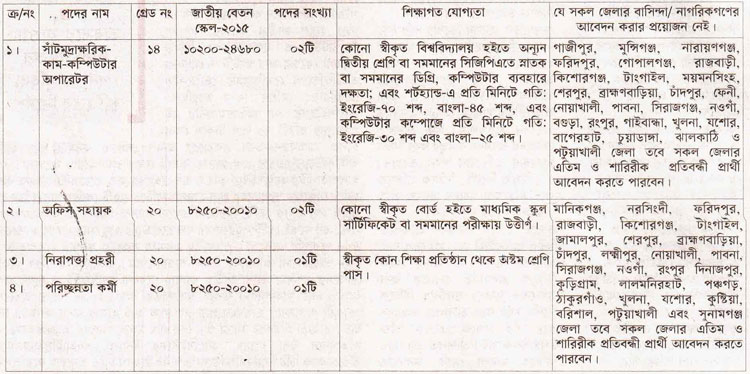 ক্র/নং পদের নাম গ্রেড নং জাতীয় বেতন স্কেল-২০১৫ পদের সংখ্যা শিক্ষাগত যোগ্যতা যে সকল জেলার বাসিন্দা/ নাগরিকগণের আবেদন করার প্রয়োজন নেই।
১। সাঁটমুদ্রাক্ষরিক-কাম-কম্পিউটার অপারেটর ১৪ ১০২০০-২৪৬৮০ ০২টি
কোনো স্বীকৃত বিশ্ববিদ্যালয় হইতে অন্যূন
দ্বিতীয় শ্রেণি বা সমমানের সিজিপিএতে স্নাতক
বা সমমানের ডিগ্রি, কম্পিউটার ব্যবহারে
দক্ষতা; এবং শর্টহ্যান্ড-এ প্রতি মিনিটে গতি:
ইংরেজি-৭০ শব্দ, বাংলা-৪৫ শব্দ, এবং
কম্পিউটার কম্পোজে প্রতি মিনিটে গতি:
ইংরেজি-৩০ শব্দ এবং বাংলা-২৫ শব্দ।
গাজীপুর, মুন্সিগঞ্জ, নারায়ণগঞ্জ,
ফরিদপুর, গোপালগঞ্জ, রাজবাড়ী,
কিশোরগঞ্জ, টাংগাইল, ময়মনসিংহ,
শেরপুর, ব্রাহ্মণবাড়িয়া, চাঁদপুর, ফেনী,
নোয়াখালী, পাবনা, সিরাজগঞ্জ, নওগাঁ,
বগুড়া, রংপুর, গাইবান্ধা, খুলনা, যশোর,
বাগেরহাট, চুয়াডাঙ্গা, ঝালকাঠি ও
পটুয়াখালী জেলা তবে সকল জেলার
এতিম ও শারিরীক প্রতিবন্ধী প্রার্থী
আবেদন করতে পারবেন।
২। অফিস সহায়ক ২০ ৮২৫০-২০০১০ ০২টি
কোনো স্বীকৃত বোর্ড হইতে মাধ্যমিক স্কুল
সার্টিফিকেট বা সমমানের পরীক্ষায় উত্তীর্ণ।
৩। নিরাপত্তা প্রহরী ২০ ৮২৫০-২০০১০ ০১টি
স্বীকৃত কোন শিক্ষা প্রতিষ্ঠান থেকে অষ্টম শ্রেণি
পাস।
৪। পরিচ্ছন্নতা কর্মী ২০ ৮২৫০-২০০১০ ০১টি
মানিকগঞ্জ, নরসিংদী, ফরিদপুর,
রাজবাড়ী, কিশোরগঞ্জ, টাংগাইল,
জামালপুর, শেরপুর, ব্রাহ্মণবাড়িয়া,
চাঁদপুর, লক্ষীপুর, নোয়াখালী, পাবনা,
সিরাজগঞ্জ, নওগাঁ, রংপুর দিনাজপুর,
কুড়িগ্রাম, লালমনিরহাট, পঞ্চগড়,
ঠাকুরগাঁও, খুলনা, যশোর, কুষ্টিয়া,
বরিশাল, পটুয়াখালী এবং সুনামগঞ্জ
জেলা তবে সকল জেলার এতিম ও
শারিরীক প্রতিবন্ধী প্রার্থী আবেদন করতে
পারবেন।